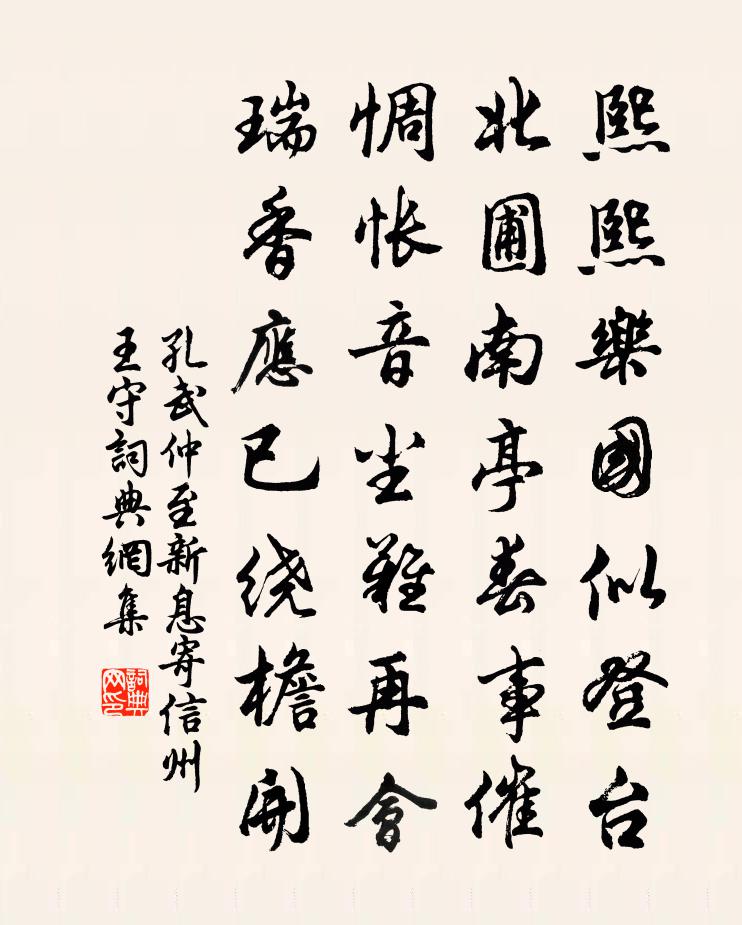 熙熙樂國似登台
北圃南亭春事催
惆悵音尘難再會
瑞香應已绕檐開
孔武仲至新息寄信州
王守詞典網集
詞典网印